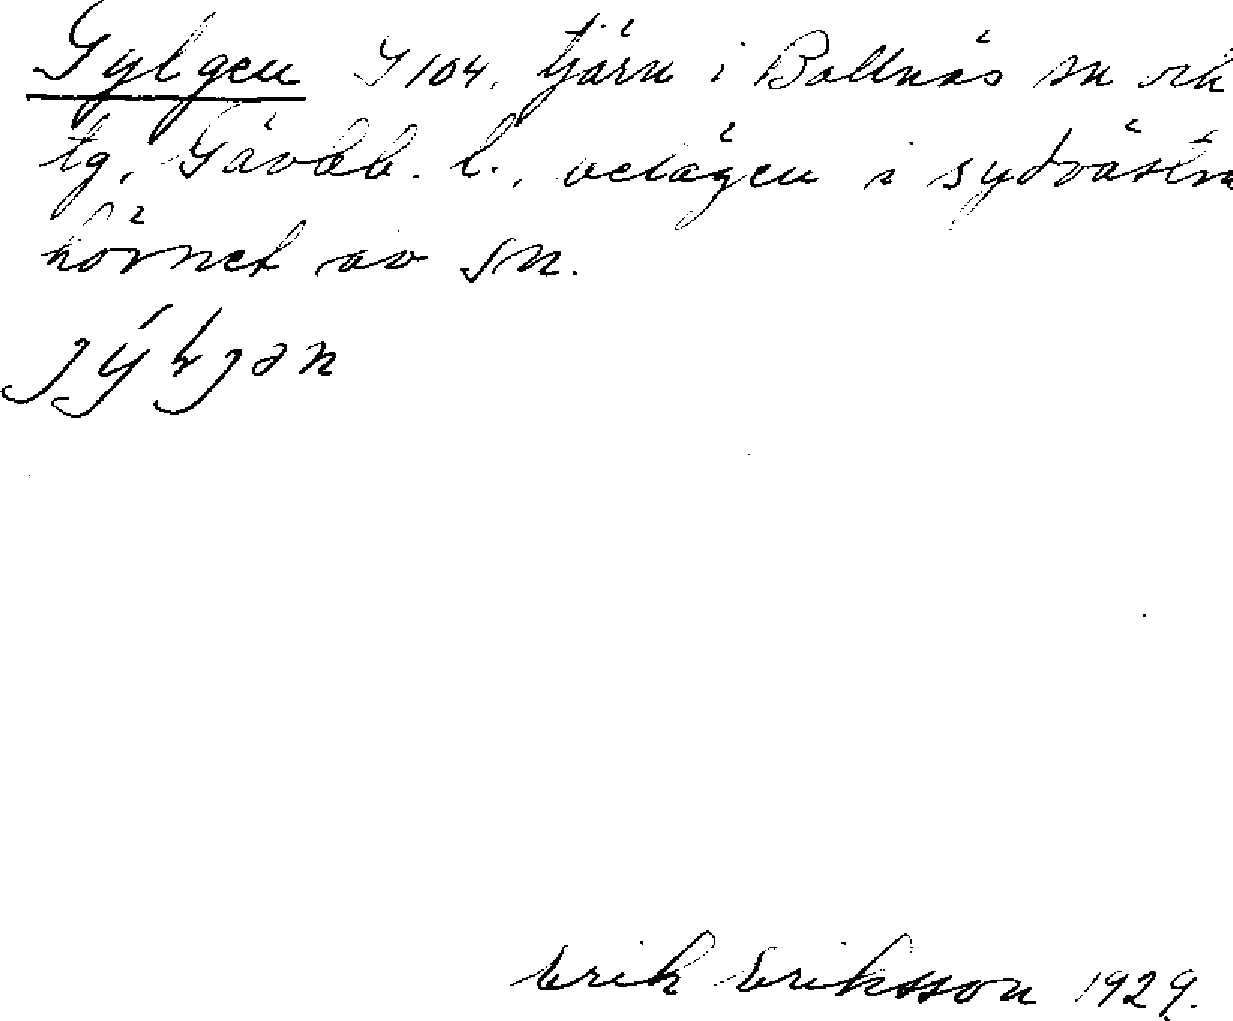 Gylgen G 104. tjärn i Bollnäs sn och
tg, Gävleb. l., belägen i sydvästra
hörnet av sn.
Erik Eriksson 1929.